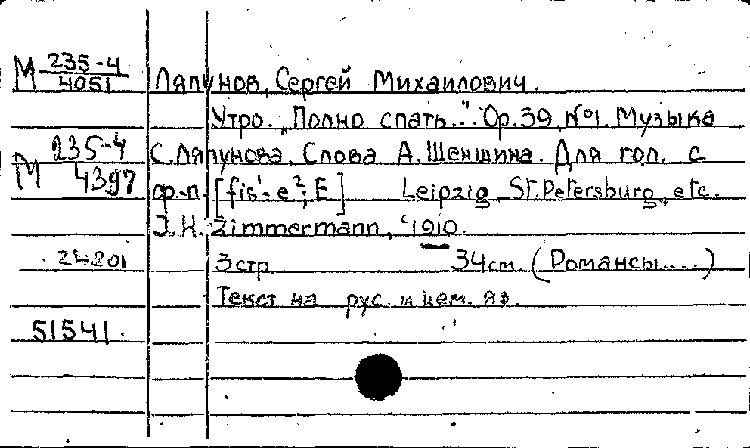 М 235-4/4051 Ляпунов, Сергей Михайлович.
Утро. "Полно спать..." Op. 39, №1. Музыка
М 235-4/4397 С. Ляпунова. Слова А. Шеншина. Для гол. с
ф.-п. [fis¹-e²; E] Leipzig, St. Petersburg, etc.
J. H. Zimmermann, 1910.
24801 3 стр. 34 см. (Романсы....)
Текст на рус. и нем. яз.
51541.